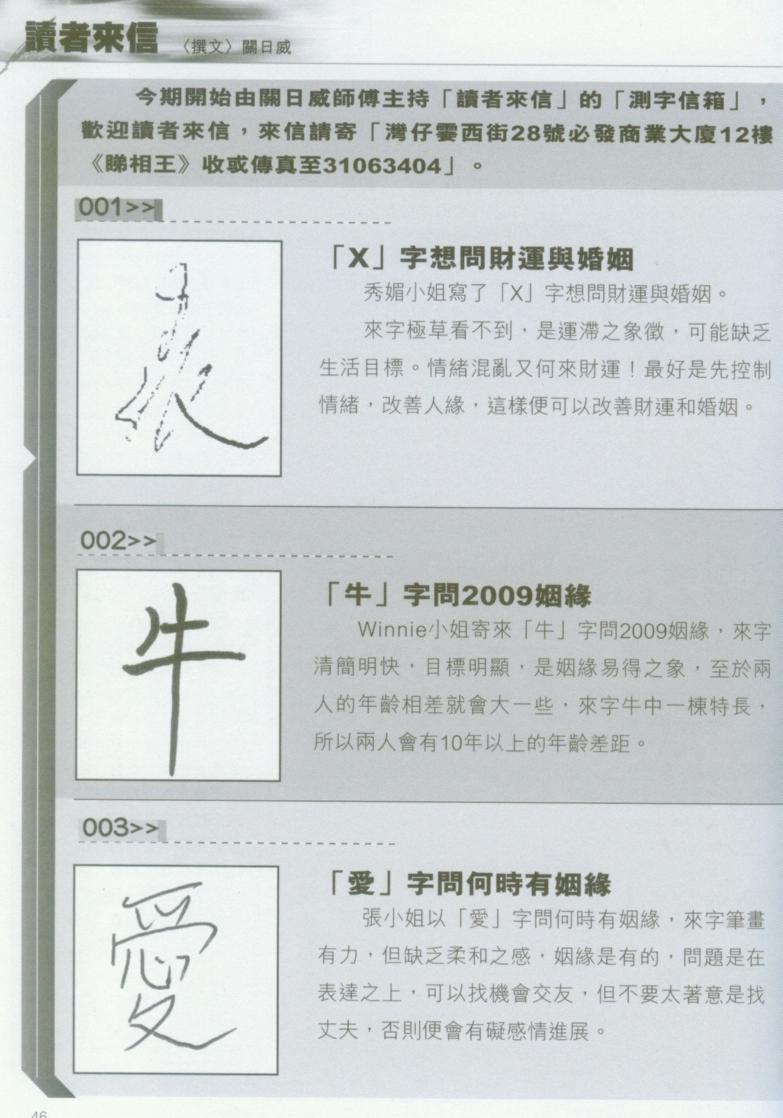 讀者來信 〈撰文〉關日威
今期開始由關日威師傅主持「讀者來信」的「測字信箱」，
歡迎讀者來信，來信請寄「灣仔雲西街28號必發商業大廈12樓
《睇相王》收或傳真至31063404」。
001>>
「X」字想問財運與婚姻
秀媚小姐寫了「X」字想問財運與婚姻。
來字極草看不到，是運滯之象徵，可能缺乏
生活目標。情緒混亂又何來財運！最好是先控制
情緒，改善人緣，這樣便可以改善財運和婚姻。
002>>
牛
「牛」字問2009姻緣
Winnie小姐寄來「牛」字問2009姻緣，來字
清簡明快，目標明顯，是姻緣易得之象，至於兩
人的年齡相差就會大一些，來字牛中一棟特長，
所以兩人會有10年以上的年齡差距。
003>>
愛
「愛」字問何時有姻緣
張小姐以「愛」字問何時有姻緣，來字筆畫
有力，但缺乏柔和之感，姻緣是有的，問題是在
表達之上，可以找機會交友，但不要太著意是找
丈夫，否則便會有礙感情進展。
46